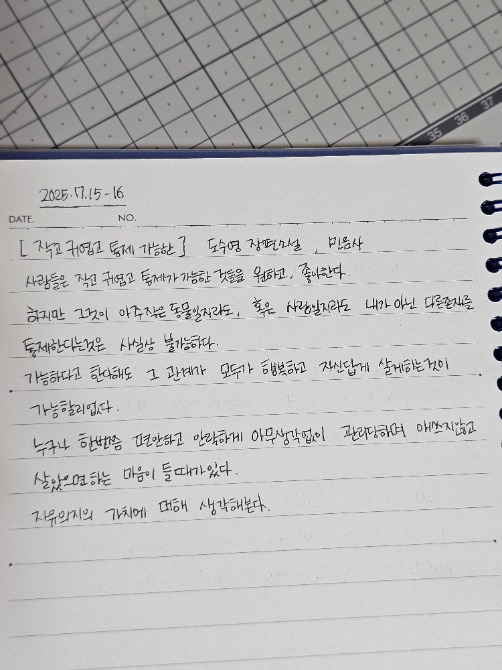 35 36 37
2025.7.15-16
DATE. NO.
[ 작고 귀엽고 통제 가능한 ] 도수영 장편소설, 민음사
사람들은 작고 귀엽고 통제가 가능한 것들을 원하고, 좋아한다.
하지만 그것이 아주작은 동물일지라도, 혹은 사람일지라도 내가 아닌 다른존재를
통제한다는것은 사실상 불가능하다.
가능하다고 한다해도 그 관계가 모두가 행복하고 자신답게 살게하는것이
가능할리없다.
누구나 한번쯤 편안하고 안락하게 아무생각없이 관리당하며 애쓰지않고
살았으면하는 마음이 들때가있다.
자유의지의 가치에 대해 생각해본다.